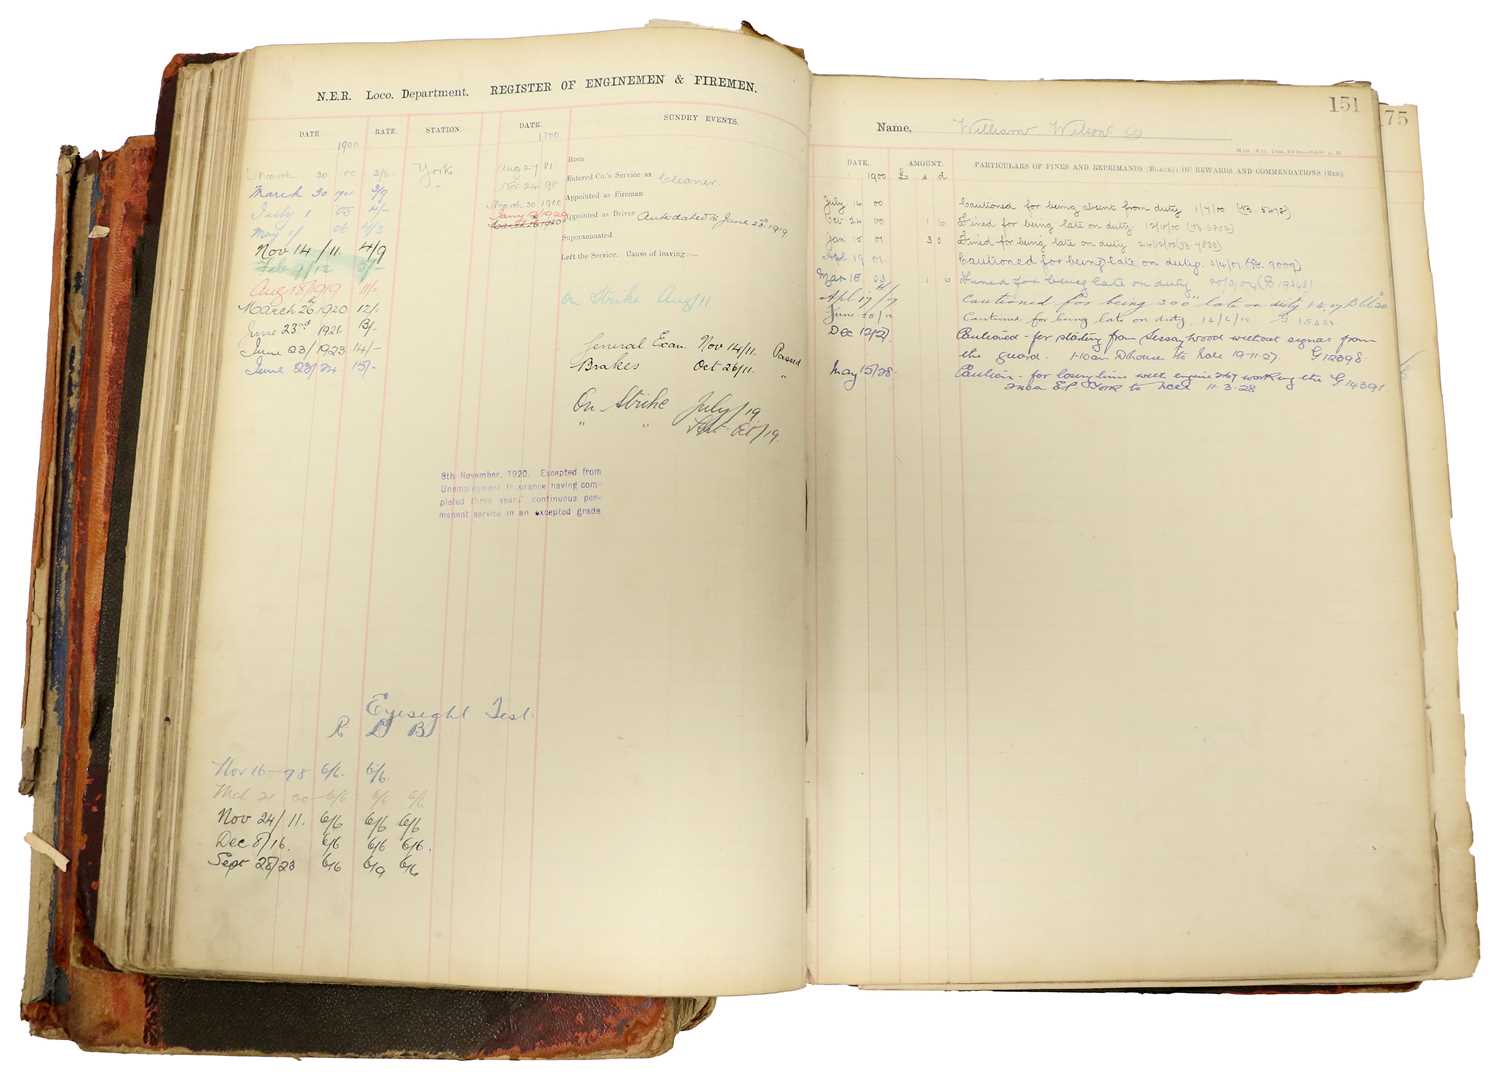 N.E.R. Loco. Department. REGISTER OF ENGINEMEN & FIREMEN.
DATE RATE. STATION. DATE. SUNDRY EVENTS.
1900 1900
30 00 York Aug 27 81 Born
March 30 1900 3/9 " Nov 24 98 Entered Co.'s Service as Cleaner
July 1 4/- March 30 1900 Appointed as Fireman
May 06 Appointed as Driver Antedated to June 23rd 1919
Nov 14/11. 4/9 Superannuated
Feb 9/12 5/- Left the Service. Cause of leaving:—
Aug 18/1919 11/-
March 26th 1920 12/- On Strike Aug/11
June 23rd 1921 13/-
June 23/1923 14/- General Exam Nov 14/11. Passed
June 23/24 15/- Brakes Oct 26/11. "
On Strike July/19
" "
8th November, 1920. Excepted from
Unemployment Insurance having com-
pleted three years' continuous per-
manent service in an excepted grade
Eyesight Test
R L B
Nov 16-98 6/6 6/6
6/6 6/6 6/6
Nov 24/11. 6/6 6/6 6/6
Dec 8/16. 6/6 6/6 6/6.
Sept 28/23 6/6 6/9 6/6
151
75
Name, William Wilson
DATE. AMOUNT. PARTICULARS OF FINES AND REPRIMANDS (BLACK) OF REWARDS AND COMMENDATIONS (RED).
1900 £ s d
July 14 00 Cautioned for being absent from duty 1/7/00
Oct 24 00 Fined for being late on duty 12/10/00
Jan 15 01 Fined for being late on duty
Apl 19 01 Cautioned for being late on duty
Mar 18 1 6 Fined for being late on duty
Apl 17/17 Cautioned for being late on duty
June 20/ Cautioned for being late on duty
Dec 12/27. Cautioned for starting from Sessay Wood without signal from
the guard. 1-10am Dhouse to 19-11-27. G12398
May 15/28. Caution for losing time with engine 2167 working the G14391
York to 11-3-28